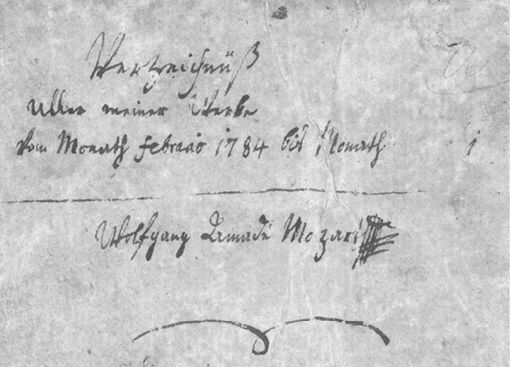 Verzeichnüß
aller meiner Werke
vom Monath febraio 1784 bis Monath 1
Wolfgang Amadè Mozart